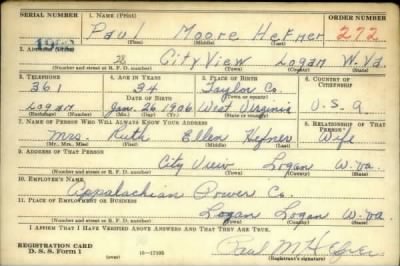 SERIAL NUMBER 1. NAME (Print) ORDER NUMBER
Paul Moore Hefner 272
(First) (Middle) (Last)
2. ADDRESS (Print)
28 City View Logan W.Va.
(Number and street or R. F. D. number) (Town) (County) (State)
3. TELEPHONE 4. AGE IN YEARS 5. PLACE OF BIRTH 6. COUNTRY OF CITIZENSHIP
361 34 Taylor Co.
DATE OF BIRTH (Town or county)
Logan Jan. 26 1906 West Virginia U.S.A
(Exchange) (Number) (Mo.) (Day) (Yr.) (State or country)
7. NAME OF PERSON WHO WILL ALWAYS KNOW YOUR ADDRESS 8. RELATIONSHIP OF THAT PERSON
Mrs. Ruth Ellen Hefner Wife
(Mr., Mrs., Miss) (First) (Middle) (Last)
9. ADDRESS OF THAT PERSON
City View Logan W.Va.
(Number and street or R. F. D. number) (Town) (County) (State)
10. EMPLOYER'S NAME
Appalachian Power Co.
11. PLACE OF EMPLOYMENT OR BUSINESS
Logan Logan W.Va.
(Number and street or R. F. D. number) (Town) (County) (State)
I AFFIRM THAT I HAVE VERIFIED ABOVE ANSWERS AND THAT THEY ARE TRUE.
REGISTRATION CARD
D. S. S. Form 1 (over) 16—17105 Paul M Hefner
(Registrant's signature)